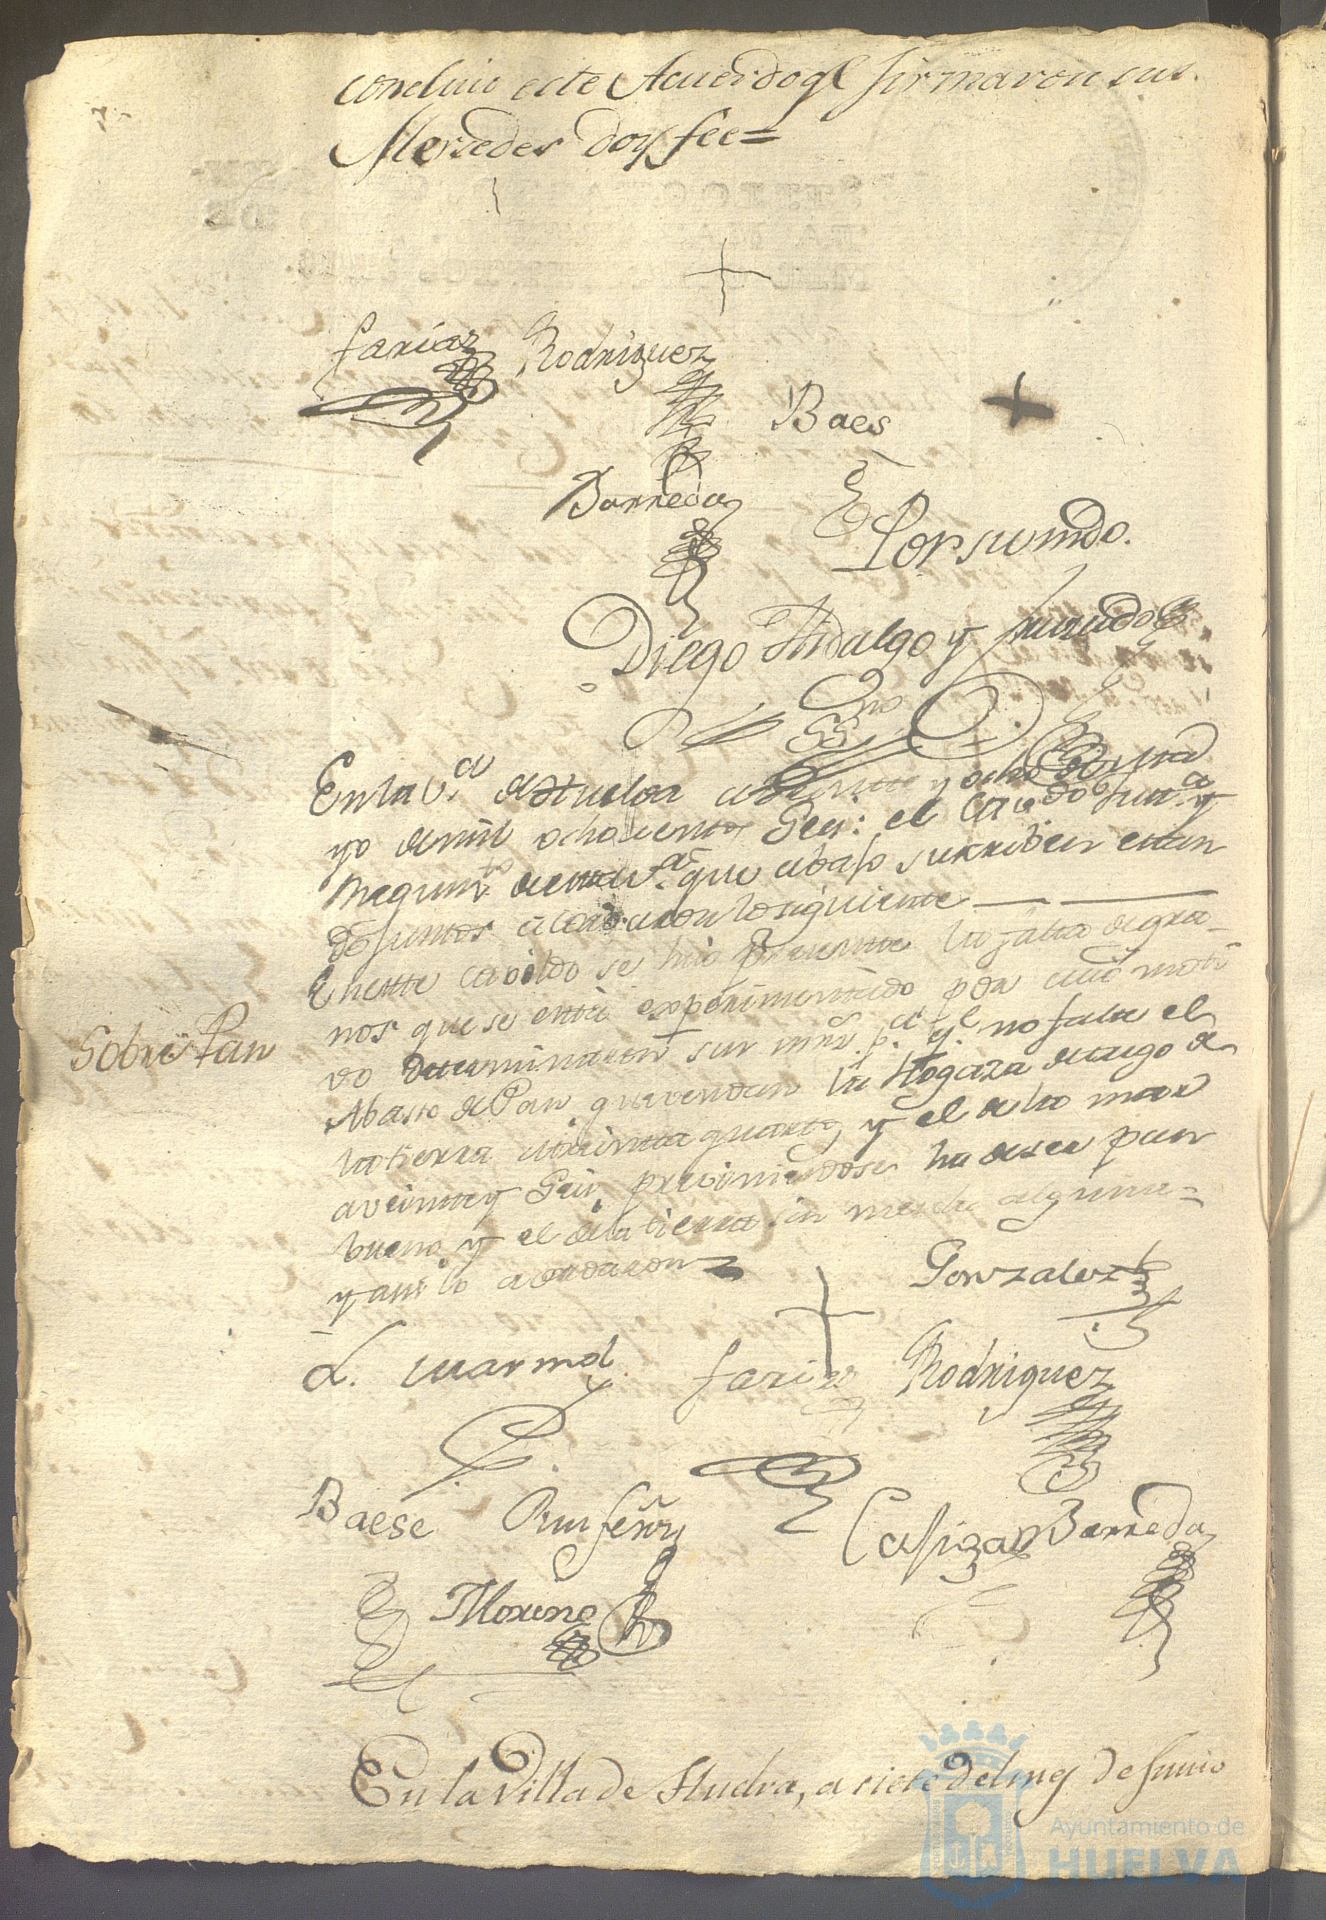 concluio este Acuerdo q.e firmaron sus
Mersedes doy fee =
Farias Rodriguez
Baes
Barreda
Por su mdo.
Diego Hidalgo y Jurado
SS.no
En la v.a de Huelva a veinte y ocho de Ma
yo de mil ochocientos Seis: el Cavdo Just.a y
Regim.to de esta v.a que abajo suscriben estan
do juntos acordaron lo siguiente
En este cavildo se hizo presente la falta de gra
nos que se está experimentando por cuio moti
vo determinaron sus mrs. p.a q.e no falte el
Abasto de Pan que vendan la Hogaza de trigo de
la tierra a treinta quartos y el de la mar
a veinte y Seis, previniendose ha de ser pan
bueno, y el de la tierra sin mescla alguna =
y asi lo acordaron =
Sobre Pan
Gonzalez
L. Marmol Farias Rodriguez
Baese Barreda
Moreno
En la Villa de Huelva, a siete del mes de Junio
Ayuntamiento de
HUELVA